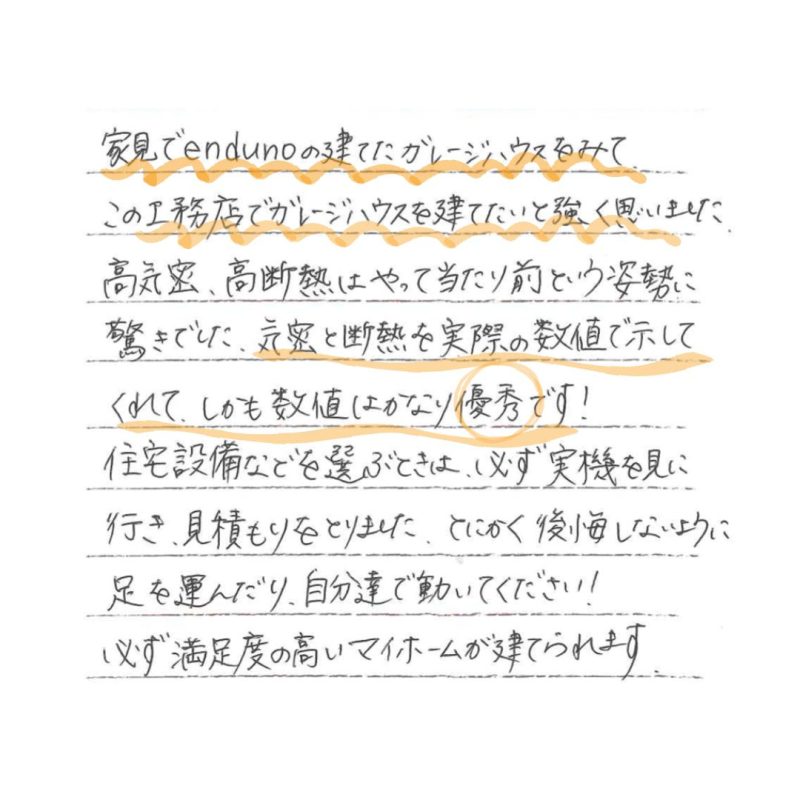 家見でendunoの建てたガレージハウスをみて
この工務店でガレージハウスを建てたいと強く思いました、
高気密、高断熱はやって当たり前という姿勢に
驚きでした、気密と断熱を実際の数値で示して
くれて、しかも数値はかなり優秀です!
住宅設備などを選ぶときは、必ず実機を見に
行き、見積もりをとりました、とにかく後悔しないように
足を運んだり、自分達で動いてください!
必ず満足度の高いマイホームが建てられます、